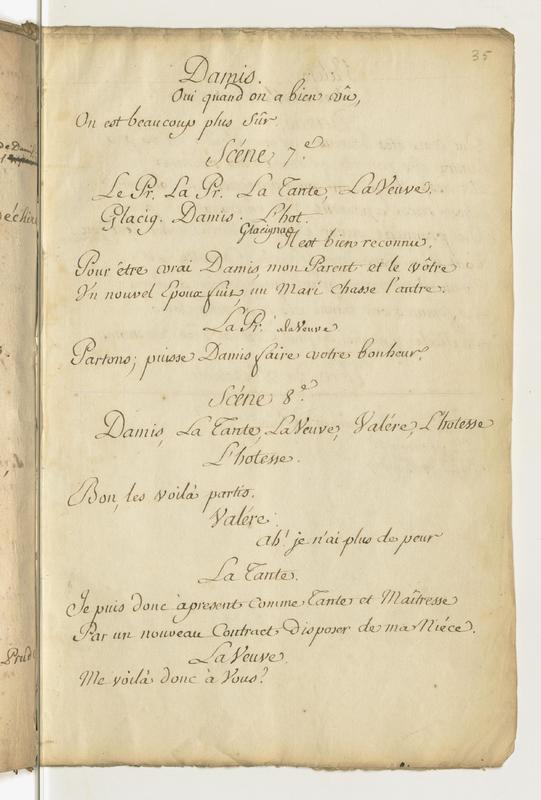 35
Damis.
Oui quand on a bien vû,
On est beaucoup plus Sûr
Scéne 7.e
Le Pr. La Pr. La Tante, La Veuve.
Glacig. Damis. L'hot.
Glacignac
Il est bien reconnu.
Pour être vrai Damis, mon Parent et le vôtre
Un nouvel Epoux fuit, un Mari chasse l'autre.
La Pr. a la Veuve
Partons; puisse Damis faire votre bonheur.
Scéne 8.e
Damis, La Tante, La Veuve, Valére, L'hotesse
L'hotesse.
Bon, les voilà partis.
Valére.
ah! je n'ai plus de peur
La Tante.
Je puis donc àpresent comme Tante et Maîtresse
Par un nouveau Contract disposer de ma Niéce.
La Veuve.
Me voilà donc à Vous?